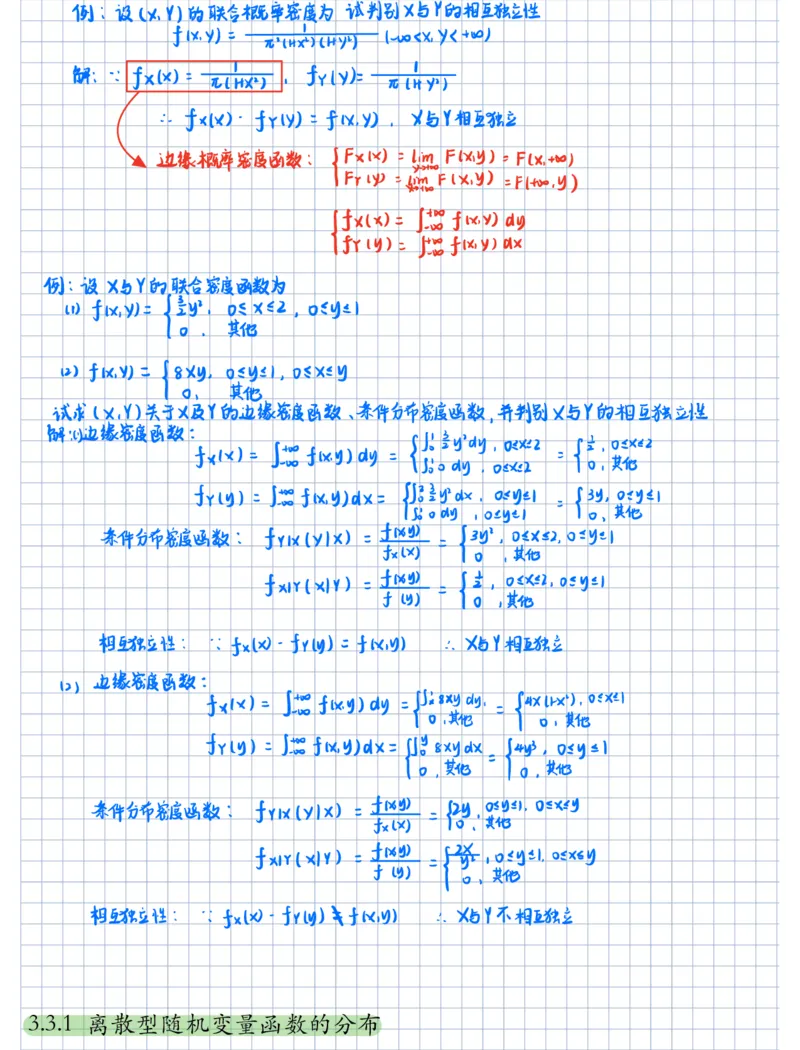 例：设(X,Y)的联合概率密度为 试判别X与Y的相互独立性
f(x,y) = 1/π²(1+x²)(1+y²) (-∞<x,y<+∞)
解：∵ fX(x) = 1/π(1+x²) , fY(y) = 1/π(1+y²)
∴ fX(x)·fY(y) = f(x,y) , X与Y相互独立
边缘概率密度函数： { FX(x) = lim y→+∞ F(x,y) = F(x,+∞)
FY(y) = lim x→+∞ F(x,y) = F(+∞,y)
{ fX(x) = ∫-∞+∞ f(x,y) dy
fY(y) = ∫-∞+∞ f(x,y) dx
例：设X与Y的联合密度函数为
(1) f(x,y) = { 3/2 y², 0≤x≤2, 0≤y≤1
0, 其他
(2) f(x,y) = { 8xy, 0≤y≤1, 0≤x≤y
0, 其他
试求(X,Y)关于X及Y的边缘密度函数、条件分布密度函数,并判别X与Y的相互独立性
解:(1)边缘密度函数：
fX(x) = ∫-∞+∞ f(x,y) dy = { ∫01 3/2 y² dy, 0≤x≤2 = { 1/2, 0≤x≤2
∫01 0 dy, 0≤x≤2 0, 其他
fY(y) = ∫-∞+∞ f(x,y) dx = { ∫02 3/2 y² dx, 0≤y≤1 = { 3y, 0≤y≤1
0 dy, 0≤y≤1 0, 其他
条件分布密度函数： fY|X(y|X) = f(x,y)/fX(x) = { 3y², 0≤x≤2, 0≤y≤1
0, 其他
fX|Y(x|Y) = f(x,y)/f (y) = { 1/2, 0≤x≤2, 0≤y≤1
0, 其他
相互独立性： ∵ fX(x)·fY(y) = f(x,y) ∴ X与Y相互独立
(2) 边缘密度函数：
fX(x) = ∫-∞+∞ f(x,y) dy = { 8xy dy, = { 4x(1-x²), 0≤x≤1
0, 其他 0, 其他
fY(y) = ∫-∞+∞ f(x,y) dx = { ∫0y 8xy dx = { 4y³, 0≤y≤1
0, 其他 0, 其他
条件分布密度函数： fY|X(y|X) = f(x,y)/fX(x) = { 2y, 0≤y≤1, 0≤x≤y
0, 其他
fX|Y(x|Y) = f(x,y)/f (y) = { 2x/y², 0≤y≤1, 0≤x≤y
0, 其他
相互独立性： ∵ fX(x)·fY(y) ≠ f(x,y) ∴ X与Y不相互独立
3.3.1 离散型随机变量函数的分布